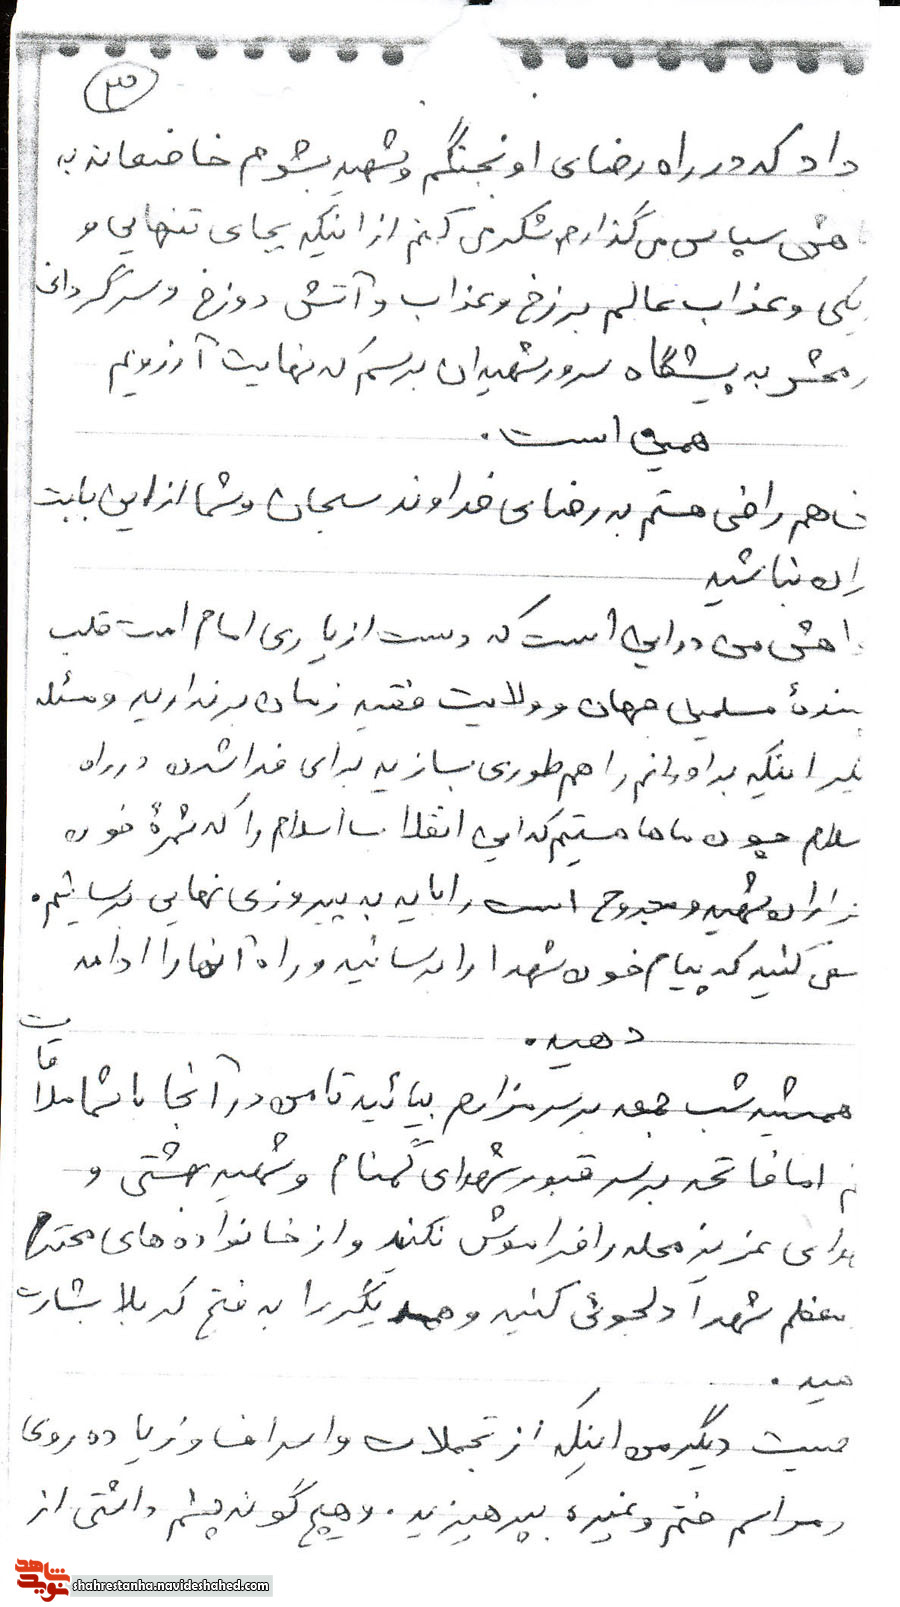 ۳
داد که در راه رضای او بجنگم و شهید بشوم خاضعانه به
سپاس می گذارم شکر می کنم از اینکه بجای تنهایی و
و عذاب عالم برزخ و عذاب و آتش دوزخ و سرگردانی
محشر به پیشگاه سرور شهیدان برسم که نهایت آرزویم
همین است.
هم راضی هستم به رضای خداوند سبحان و شما از این بابت
نباشید
من در این است که دست از یاری امام امت قلب
مسلمین جهان و ولایت فقیه زمان برندارید و مسئله
اینکه برادرانم را هم طوری بسازید برای فدا شدن در راه
چون ماها هستیم که این انقلاب اسلام را که ثمرهٔ خون
شهید و مجروح است را باید به پیروزی نهایی برسانیم.
سعی کنید که پیام خون شهدا را برسانید و راه آنها را ادامه
دهید.
همیشه شب جمعه بر سر مزارم بیائید تا من در آنجا با شما ملاقات
اما فاتحه بر سر قبور شهدای گمنام و شهید بهشتی و
عزیز محله را فراموش نکنید و از خانواده های محترم
معظم شهدا دلجوئی کنید و همدیگر را به فتح کربلا بشارت
دیگر من اینکه از تجملات و اسراف و زیاده روی
مراسم ختم و غیره بپرهیزید. و هیچ گونه چشم داشتی از
شاهد
نوید
shahrestanha.navideshahed.com